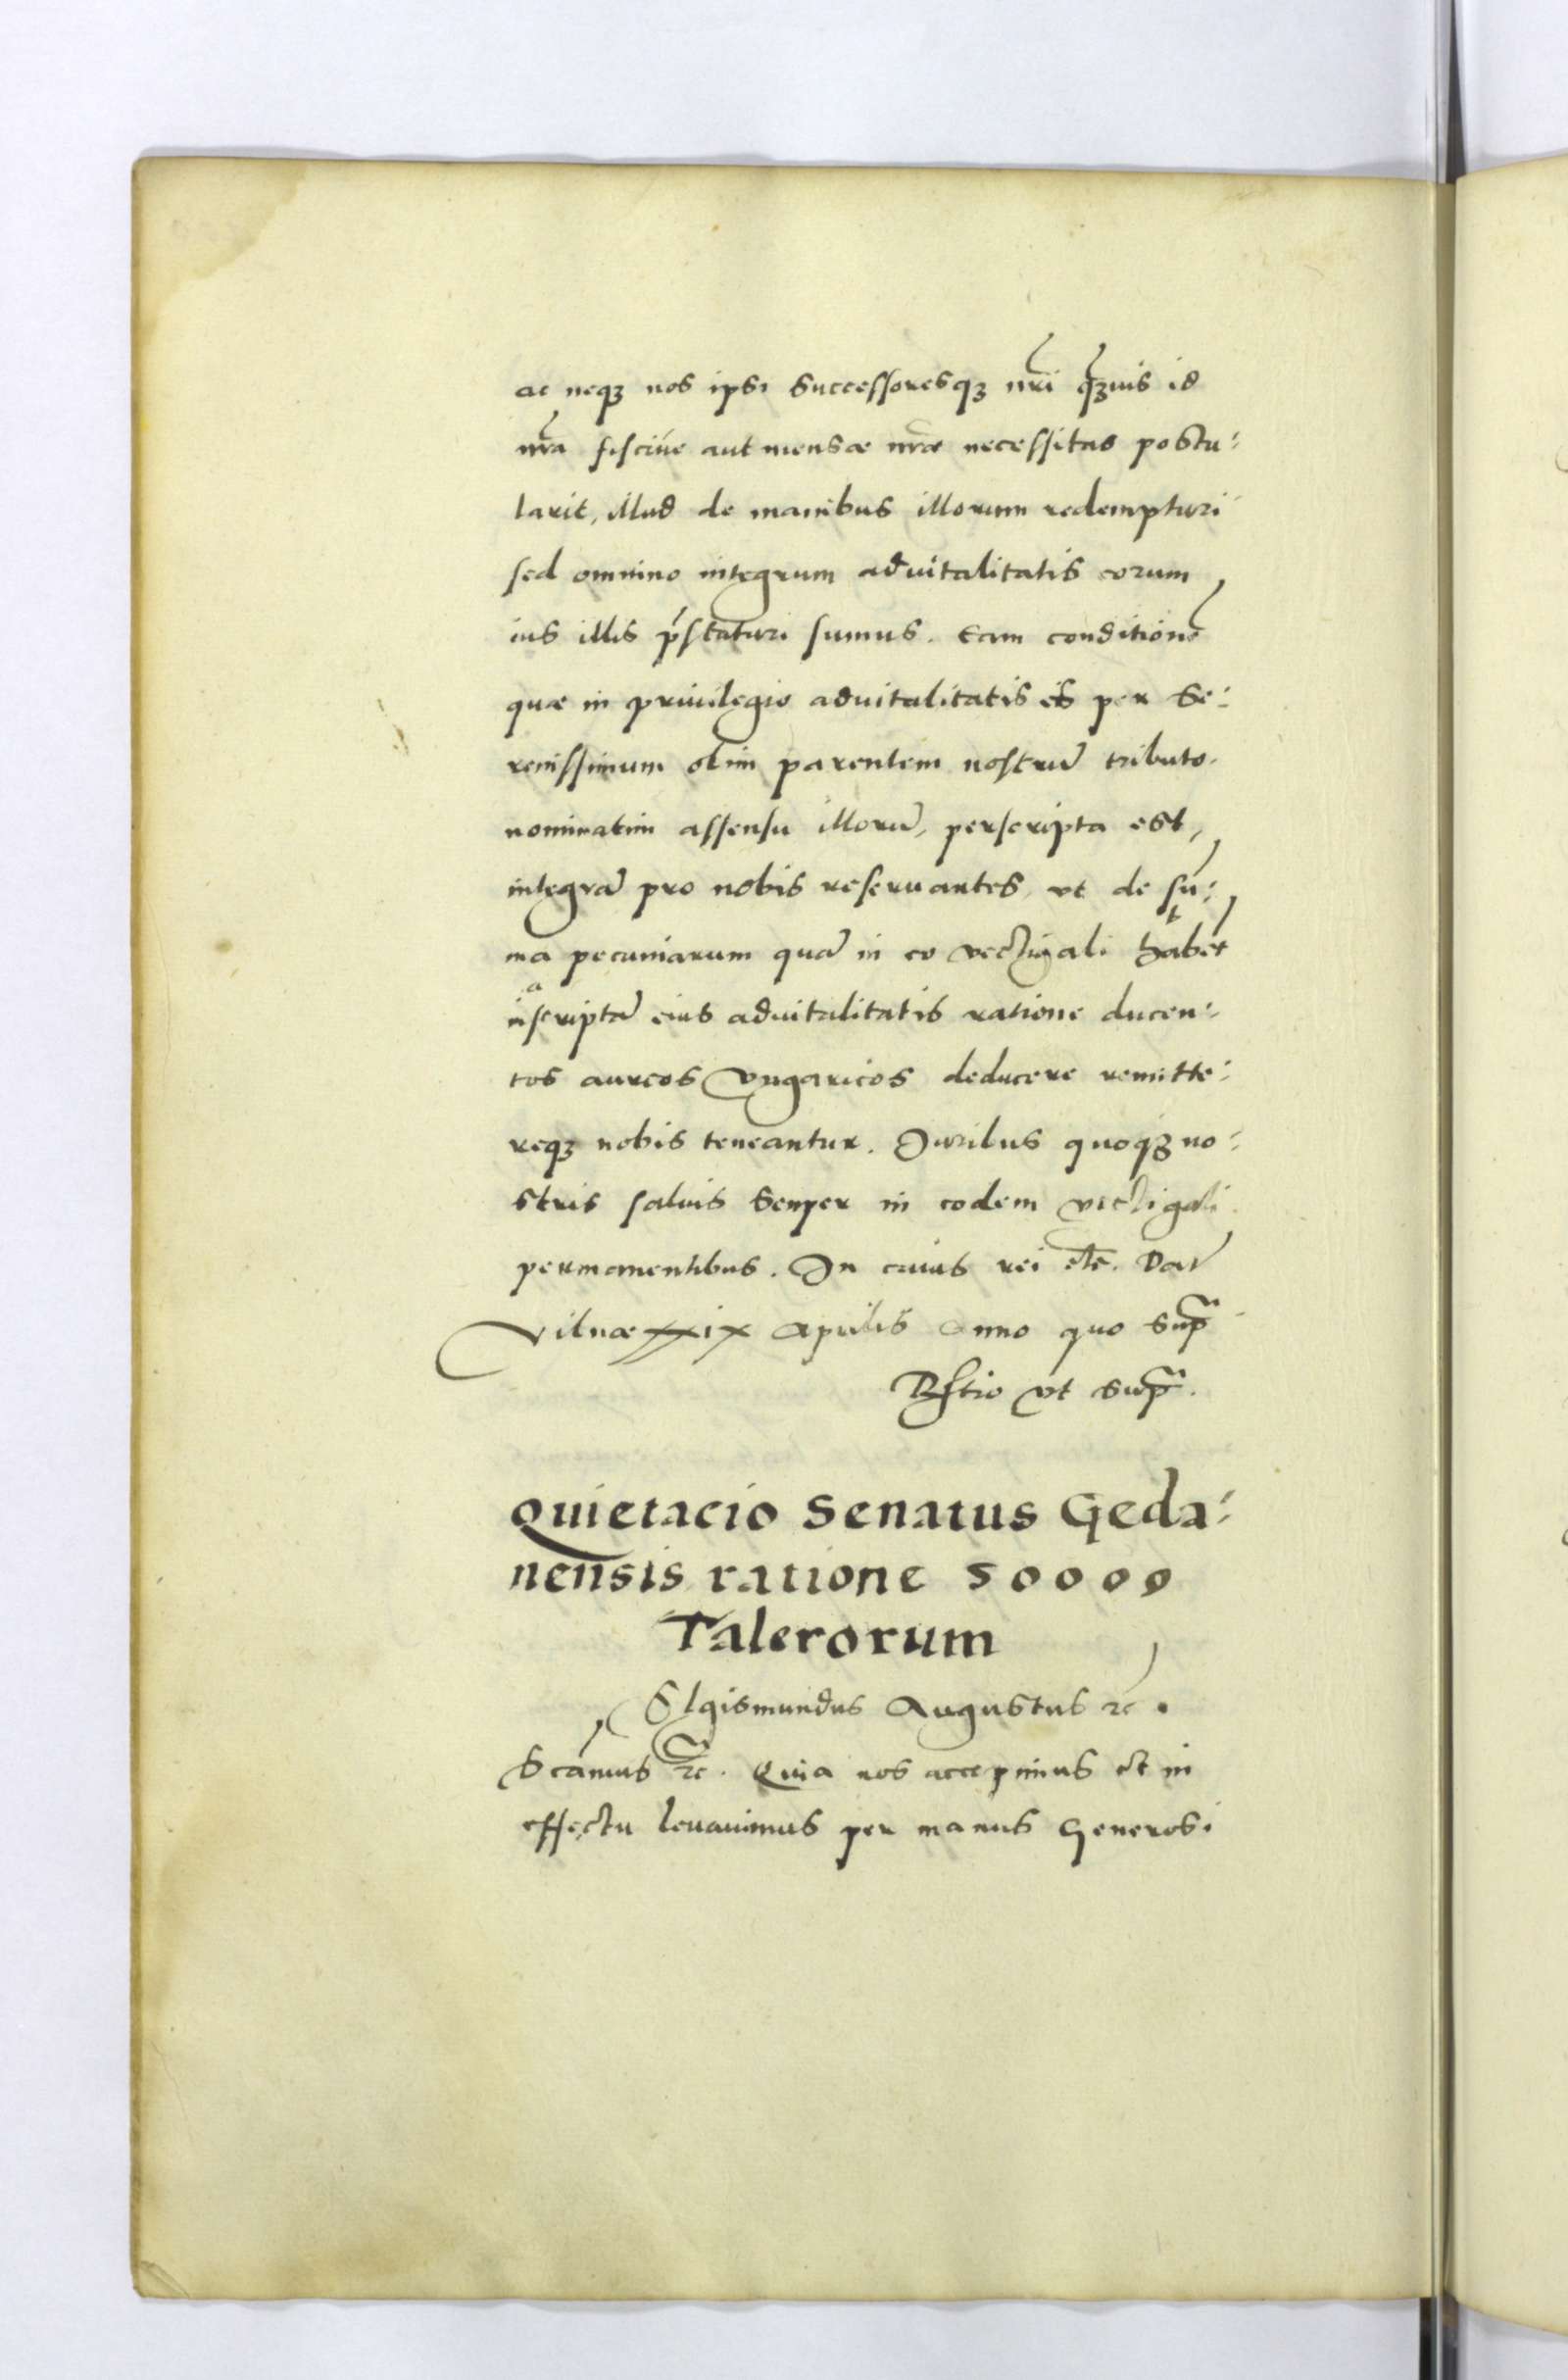 ac neqꝫ nos ipsi successoresqꝫ nr̃i qꝫuis id
nr̃a fisciue aut mensæ nr̃æ necessitas postu:
larit, illud de manibus illorum redempturi
sed omnino integrum aduitalitatis eorum
ius illis p̃staturi sumus. Eam conditionē
quæ in priuilegio aduitalitatis eis per Se:
renissimum olim parentem nostrū tributo.
nominatim assensu illorū, perscripta est,
integrā pro nobis reseruantes, vt de sū:
ma pecuniarum quā in eo vectigali habēt
inscriptā eius aduitalitatis ratione ducen:
tos aureos Vngaricos deducere remitte:
reqꝫ nobis teneantur. Iuribus quoqꝫ no:
stris saluis semper in eodem vectigali
permanentibus. In cuius rei etc̄. Dat̃
Vilnæ xxix Aprilis Anno quo sup̃
R̃stio vt sup̃.
Quietacio Senatus Geda:
nensis ratione 50000
Talerorum
SIgismundus Augustus ꝛc.
Scāmus ꝛc. Quia nos accepimus et in
effectu leuauimus per manus Generosi